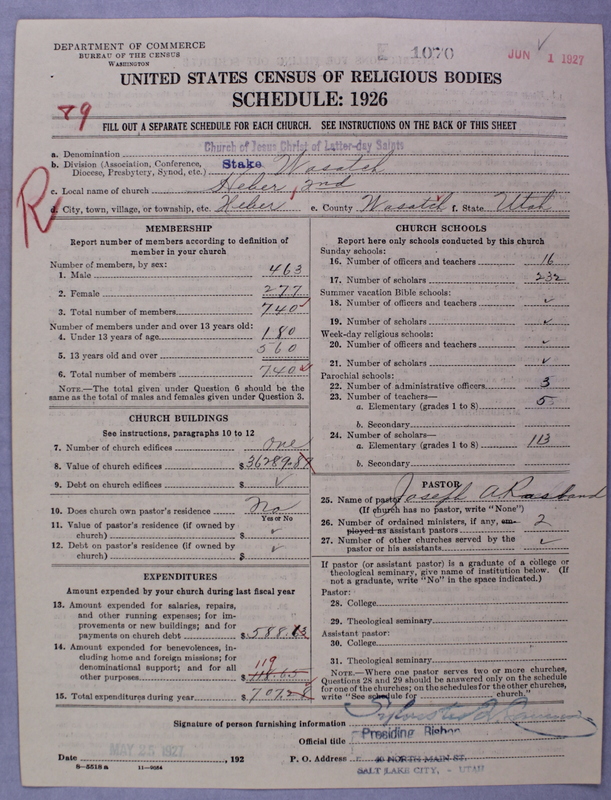 DEPARTMENT OF COMMERCE
BUREAU OF THE CENSUS
WASHINGTON
E 1070
JUN 1 1927
UNITED STATES CENSUS OF RELIGIOUS BODIES
SCHEDULE: 1926
79
FILL OUT A SEPARATE SCHEDULE FOR EACH CHURCH. SEE INSTRUCTIONS ON THE BACK OF THIS SHEET
R
a. Denomination Church of Jesus Christ of Latter-day Saints
b. Division (Association, Conference, Diocese, Presbytery, Synod, etc.) Stake Wasatch
c. Local name of church Heber, 2nd
d. City, town, village, or township, etc. Heber e. County Wasatch f. State Utah
MEMBERSHIP
Report number of members according to definition of
member in your church
Number of members, by sex:
1. Male 463
2. Female 277
3. Total number of members 740
Number of members under and over 13 years old:
4. Under 13 years of age 180
5. 13 years old and over 560
6. Total number of members 740
NOTE.—The total given under Question 6 should be
the same as the total of males and females given under Question 3.
CHURCH BUILDINGS
See instructions, paragraphs 10 to 12
7. Number of church edifices one
8. Value of church edifices $36289.87
9. Debt on church edifices $ ✓
10. Does church own pastor's residence No
Yes or No
11. Value of pastor's residence (if owned by
church) $ ✓
12. Debt on pastor's residence (if owned by
church) $ ✓
EXPENDITURES
Amount expended by your church during last fiscal year
13. Amount expended for salaries, repairs,
and other running expenses; for im-
provements or new buildings; and for
payments on church debt $588.13
14. Amount expended for benevolences, in-
cluding home and foreign missions; for
denominational support; and for all
119
other purposes $
15. Total expenditures during year $707.28
CHURCH SCHOOLS
Report here only schools conducted by this church
Sunday schools:
16. Number of officers and teachers 16
17. Number of scholars 232
Summer vacation Bible schools:
18. Number of officers and teachers ✓
19. Number of scholars ✓
Week-day religious schools:
20. Number of officers and teachers ✓
21. Number of scholars ✓
Parochial schools:
22. Number of administrative officers 3
23. Number of teachers—
a. Elementary (grades 1 to 8) 5
b. Secondary
24. Number of scholars—
a. Elementary (grades 1 to 8) 113
b. Secondary
PASTOR
25. Name of pastor Joseph A Rasband
(If church has no pastor, write "None")
26. Number of ordained ministers, if any, em-
ployed as assistant pastors 2
27. Number of other churches served by the
pastor or his assistants ✓
If pastor (or assistant pastor) is a graduate of a college or
theological seminary, give name of institution below. (If
not a graduate, write "No" in the space indicated.)
Pastor:
28. College
29. Theological seminary
Assistant pastor:
30. College
31. Theological seminary
NOTE.—Where one pastor serves two or more churches,
Questions 28 and 29 should be answered only on the schedule
for one of the churches; on the schedules for the other churches,
write "See schedule for church."
Signature of person furnishing information Sylvester Q. Cannon
Official title Presiding Bishop
Date MAY 25 1927, 192 P. O. Address 40 NORTH MAIN ST.
SALT LAKE CITY, - UTAH
8—5518 a 11—9084